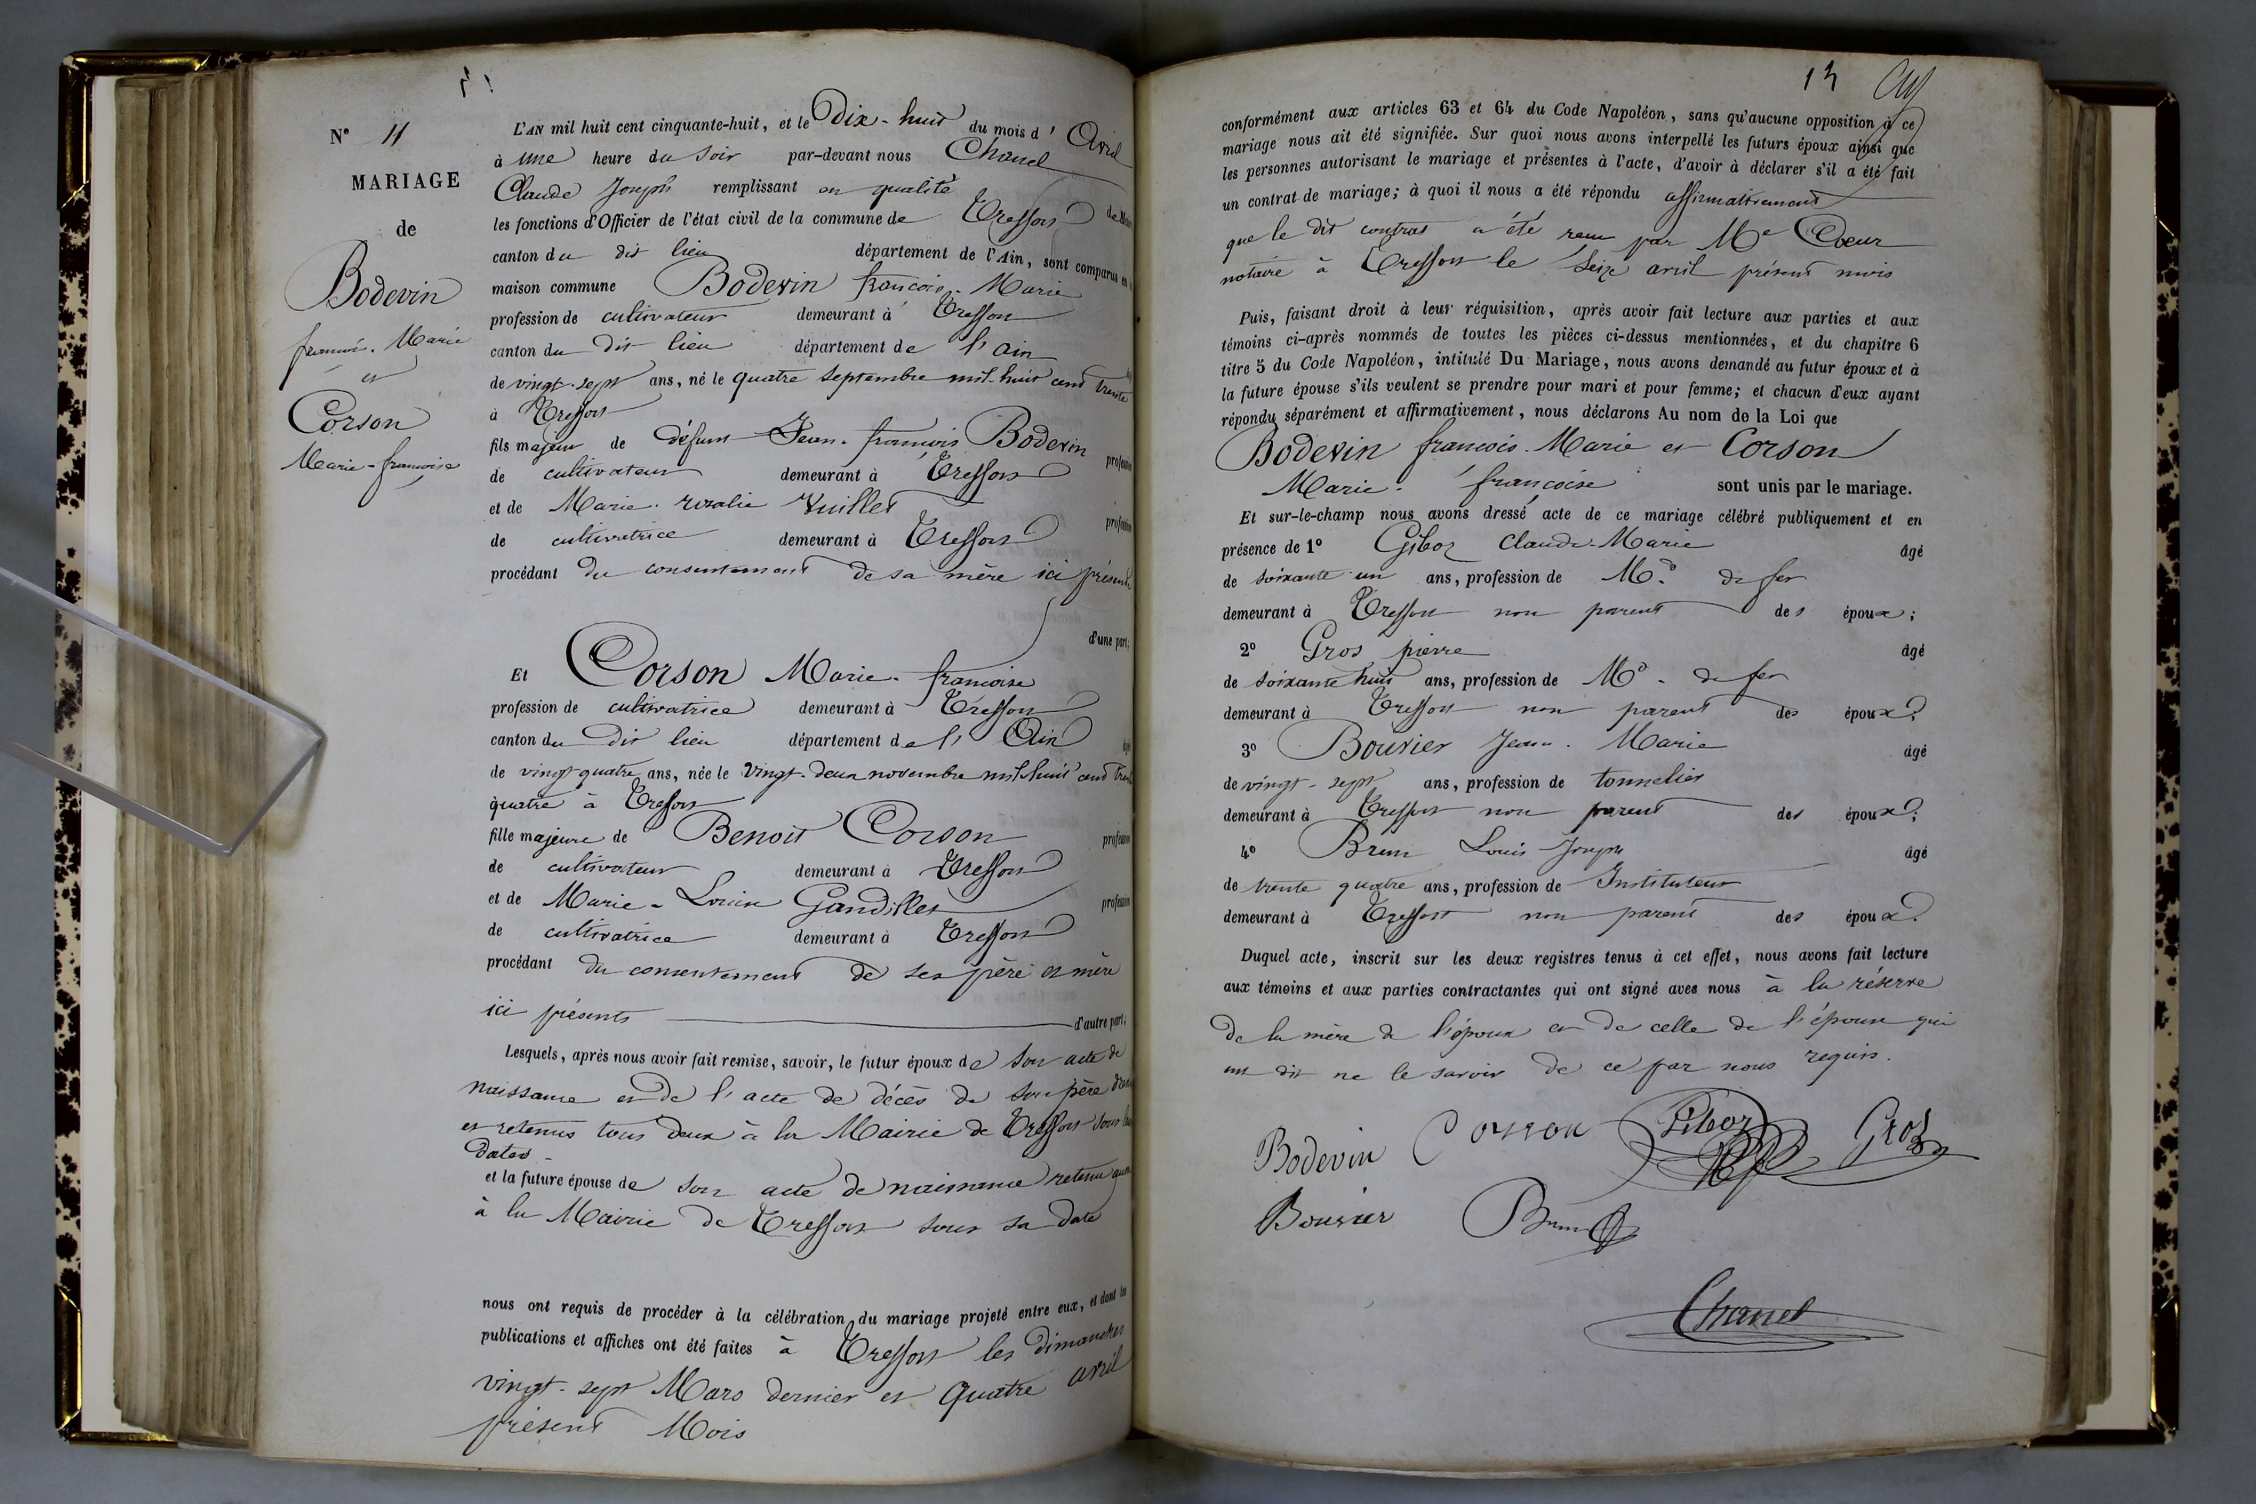 N° 11
MARIAGE
de
Bodevin
francois. Marie
et
Corson
Marie-françoise
L'AN mil huit cent cinquante-huit, et le Dix-huit du mois d'Avril
à une heure du soir par-devant nous Chanel
Claude Joseph remplissant en qualité de
les fonctions d'Officier de l'état civil de la commune de Treffort
canton du dit lieu département de l'Ain, sont comparus en
maison commune Bodevin francois. Marie
profession de cultivateur demeurant à Treffort
canton du dit lieu département de l'ain
de vingt-sept ans, né le quatre septembre mil-huit cent trente
à Treffort
fils majeur de défunt Jean-françois Bodevin profession
de cultivateur demeurant à Treffort
et de Marie-rozalie Vuillet profession
de cultivatrice demeurant à Treffort
procédant du consentement de sa mère ici présente
d'une part;
Et Corson Marie-francoise
profession de cultivatrice demeurant à Treffort
canton du dit lieu département de l'Ain
de vingt-quatre ans, née le vingt-deux novembre mil-huit cent trente
quatre à Treffort
fille majeure de Benoit Corson profession
de cultivateur demeurant à Treffort
et de Marie-Louise Gandillet profession
de cultivatrice demeurant à Treffort
procédant du consentement de ses père et mère
ici présents d'autre part;
Lesquels, après nous avoir fait remise, savoir, le futur époux de son acte de
naissance et de l'acte de décès de son père
et retenus tous deux à la Mairie de Treffort sous
dates
et la future épouse de son acte de naissance retenu
à la Mairie de Treffort sous sa date
nous ont requis de procéder à la célébration du mariage projeté entre eux, et dont les
publications et affiches ont été faites à Treffort les dimanches
vingt-sept Mars dernier et quatre avril
présent Mois
13
conformément aux articles 63 et 64 du Code Napoléon, sans qu'aucune opposition à ce
mariage nous ait été signifiée. Sur quoi nous avons interpellé les futurs époux ainsi que
les personnes autorisant le mariage et présentes à l'acte, d'avoir à déclarer s'il a été fait
un contrat de mariage; à quoi il nous a été répondu affirmativement
que le dit contrat a été recu par Me Coeur
notaire à Treffort le seize avril présent mois
Puis, faisant droit à leur réquisition, après avoir fait lecture aux parties et aux
témoins ci-après nommés de toutes les pièces ci-dessus mentionnées, et du chapitre 6
titre 5 du Code Napoléon, intitulé Du Mariage, nous avons demandé au futur époux et à
la future épouse s'ils veulent se prendre pour mari et pour femme; et chacun d'eux ayant
répondu séparément et affirmativement, nous déclarons Au nom de la Loi que
Bodevin francois. Marie et Corson
Marie-françoise sont unis par le mariage.
Et sur-le-champ nous avons dressé acte de ce mariage célébré publiquement et en
présence de 1° Giboz Claude-Marie âgé
de soixante un ans, profession de Md de fer
demeurant à Treffort non parent des époux;
2° Gros pierre âgé
de soixante huit ans, profession de Md de fer
demeurant à Treffort non parent des époux;
3° Bouvier Jean. Marie âgé
de vingt-sept ans, profession de tonnelier
demeurant à Treffort non parent des époux;
4° Brun Louis Joseph âgé
de trente quatre ans, profession de Instituteur
demeurant à Treffort non parent des époux.
Duquel acte, inscrit sur les deux registres tenus à cet effet, nous avons fait lecture
aux témoins et aux parties contractantes qui ont signé avec nous à la réserve
de la mère de l'époux et de celle de l'épouse qui
ont dit ne le savoir de ce par nous requis.
Bodevin Corson Giboz Gros
Bouvier Brun
Chanel